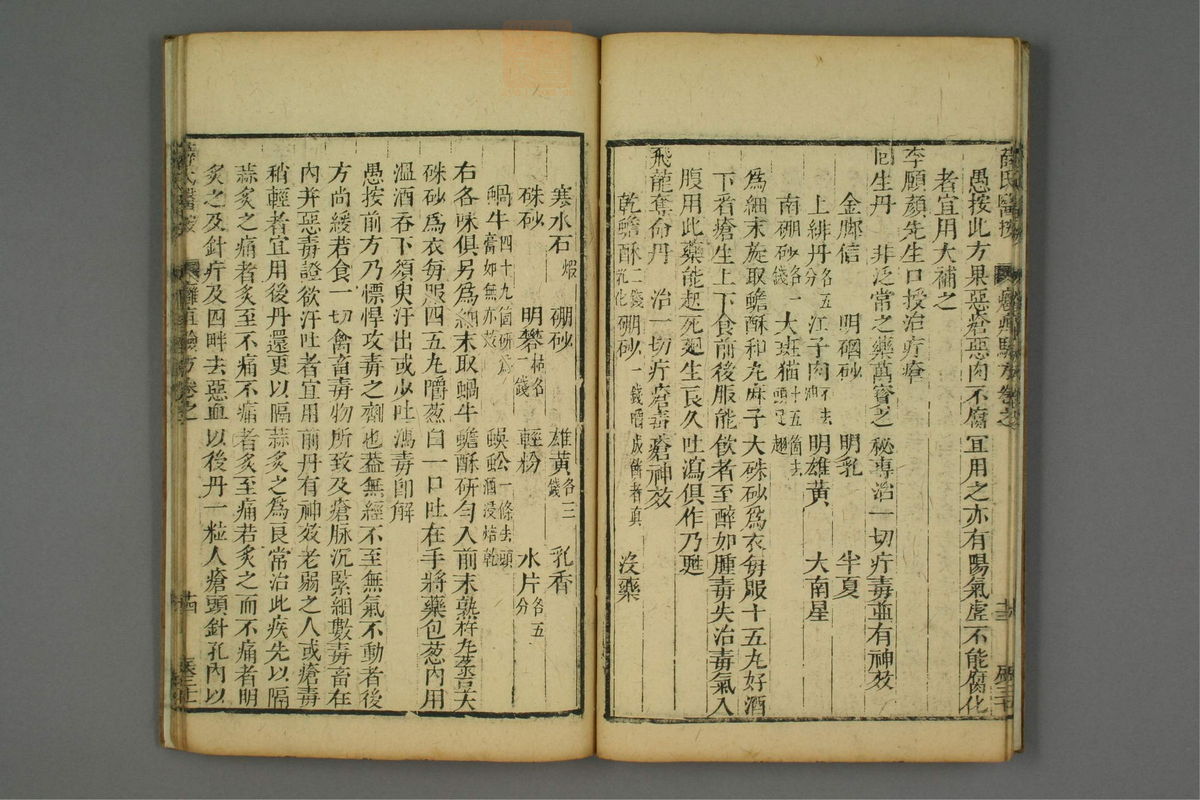 愚按此方果惡瘡惡肉不腐宜用之亦有陽氣虛不能腐化
者宜用大補之
李願顏先生口授治疔瘡
回生丹 非泛常之藥萬寳之秘專治一切疔毒並有神效
金脚信 明硇砂 明乳 半夏
上緋丹各五分 江子肉不去油 明雄黃 大南星
南硼砂各一錢 大斑猫十五箇去頭足翅
爲細末旋取蟾酥和丸麻子大硃砂爲衣每服十五丸好酒
下看瘡生上下食前後服能飲者至醉如腫毒失治毒氣入
腹用此藥能起死廻生良久吐瀉俱作乃甦
飛龍奪命丹 治一切疔瘡毒瘡神效
乾蟾酥二錢乳化 硼砂一錢 没藥
寒水石煅 硼砂 雄黃各三錢 乳香
硃砂 明礬枯各一錢 輕粉 水片各五分
蝸牛四十九箇研如無亦效 蜈蚣一條去頭酒浸焙乾
右各味俱另爲細末取蝸牛蟾酥研匀入前末熟杵丸菉豆大
硃砂爲衣每服四五丸嚼葱白一口吐在手將藥包葱内用
溫酒吞下須臾汗出或少吐瀉毒即解
愚按前方乃慓悍攻毒之劑也葢無經不至無氣不動者後
方尚緩若食一切禽畜毒物所致及瘡脉沉緊細數毒畜在
内并惡毒證欲汗吐者宜用前丹有神效老弱之人或瘡毒
稍輕者宜用後丹還更以隔蒜炙之爲良常治此疾先以隔
蒜炙之痛者炙至不痛不痛者炙至痛若炙之而不痛者明
炙之及針疔及四畔去惡血以後丹一粒入瘡頭針孔内以